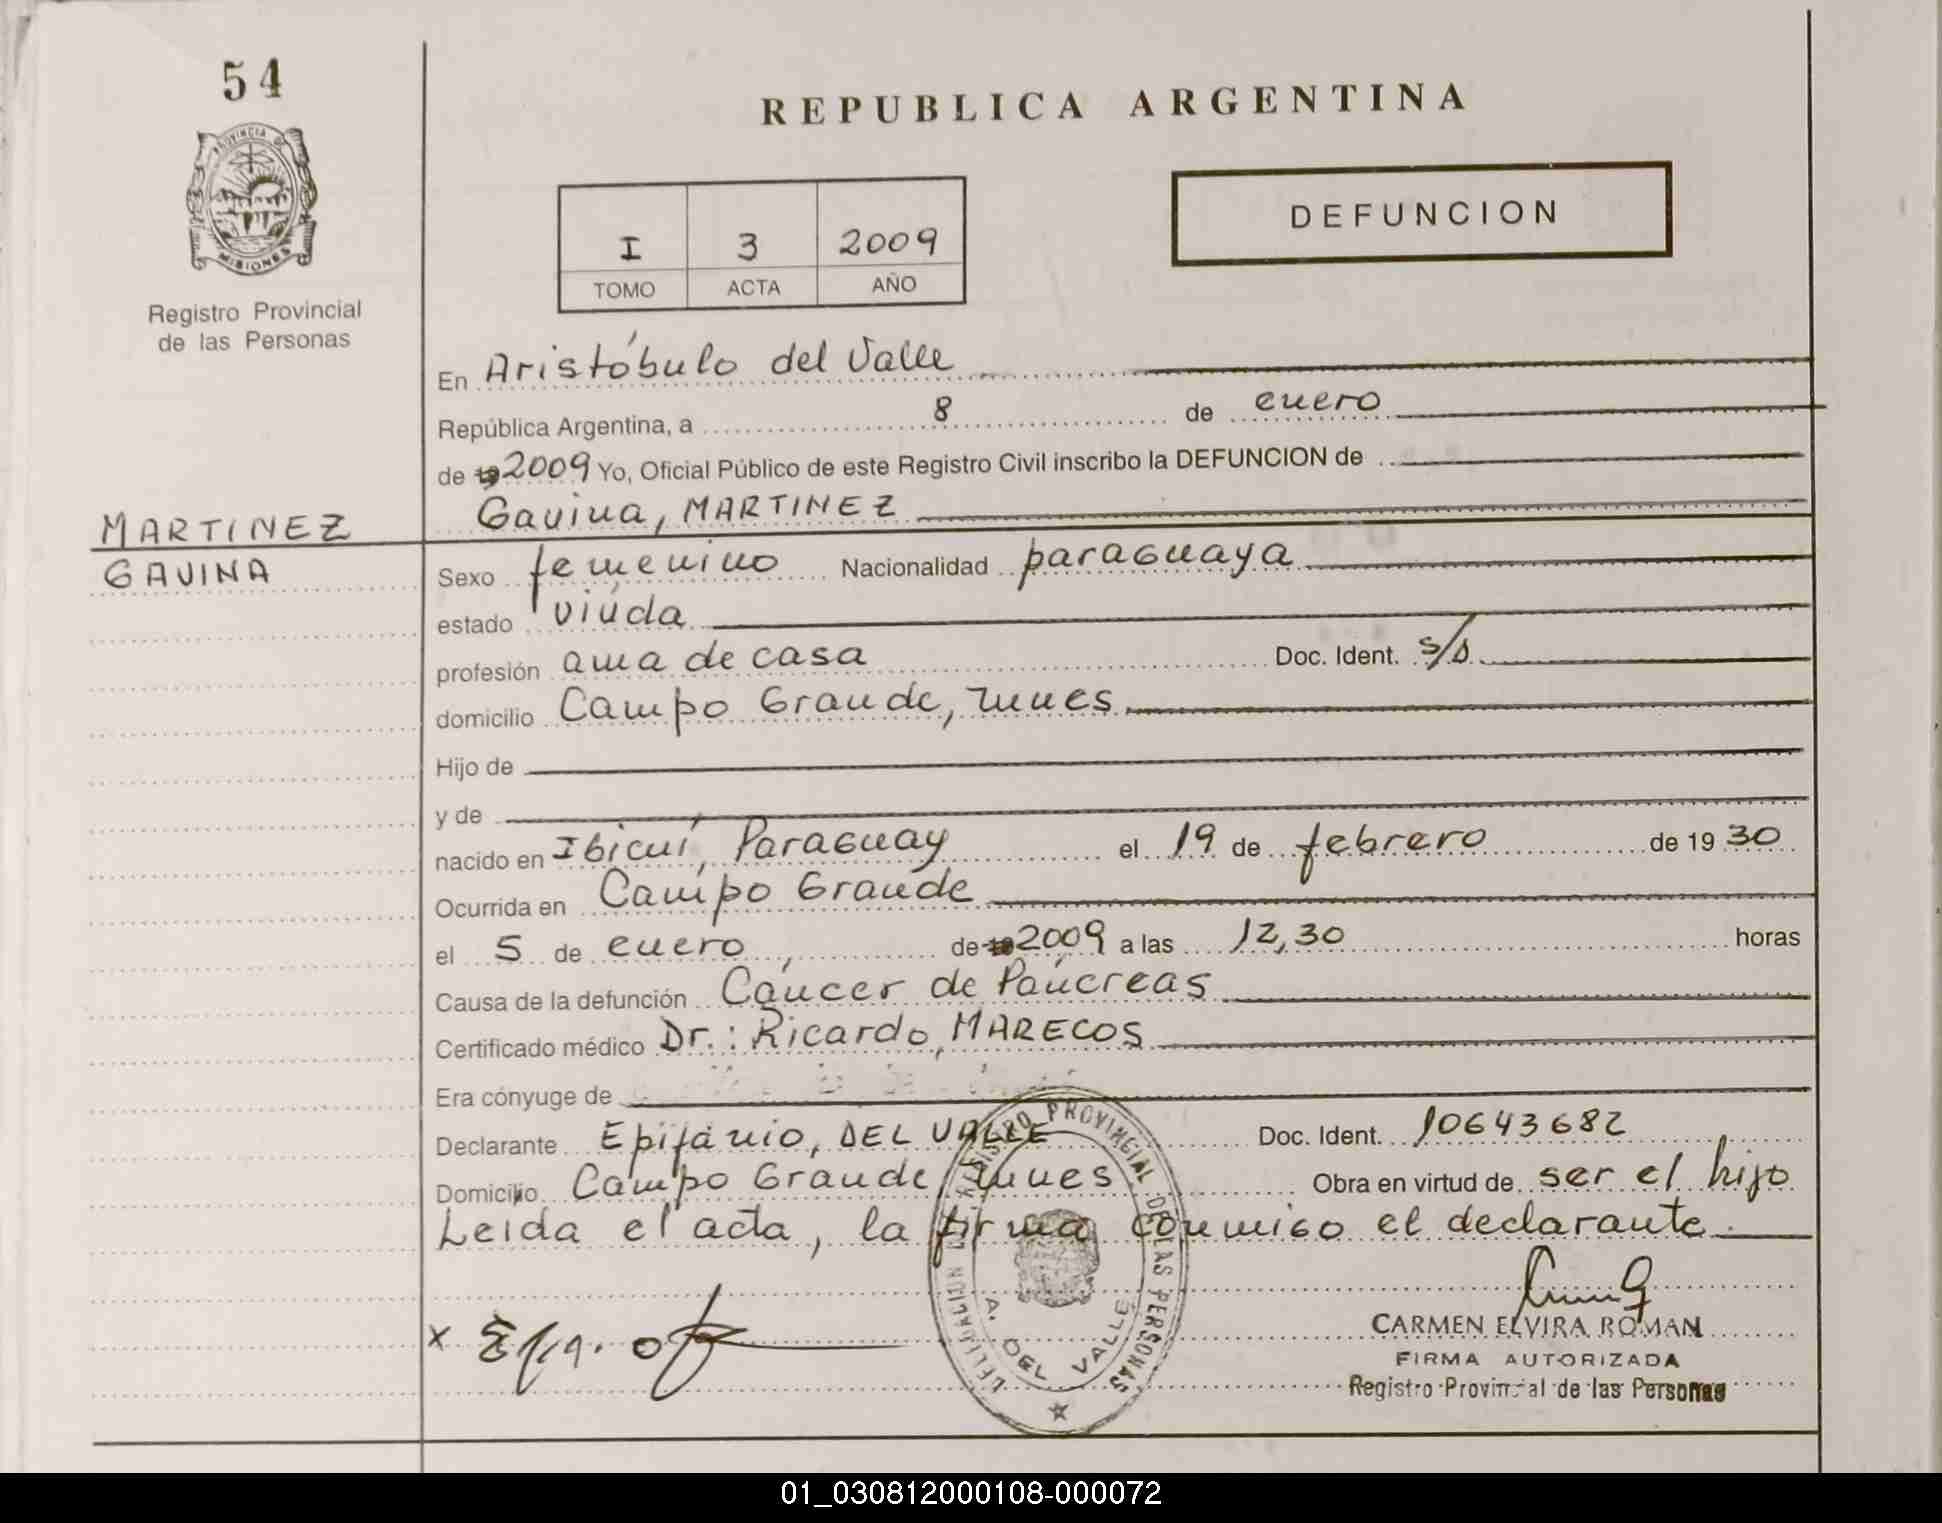 54
REPUBLICA ARGENTINA
PROVINCIA DE
MISIONES
Registro Provincial
de las Personas
I 3 2009
TOMO ACTA AÑO
DEFUNCION
En Aristóbulo del Valle
República Argentina, a 8 de enero
de 2009 Yo, Oficial Público de este Registro Civil inscribo la DEFUNCION de
Gavina, MARTINEZ
MARTINEZ
GAVINA
Sexo femenino Nacionalidad paraguaya
estado viuda
profesión ama de casa Doc. Ident. s/d
domicilio Campo Grande, Mnes
Hijo de
y de
nacido en Ibicuí, Paraguay el 19 de febrero de 1930
Ocurrida en Campo Grande
el 5 de enero, de 2009 a las 12,30 horas
Causa de la defunción Cáncer de Páncreas
Certificado médico Dr.: Ricardo, MARECOS
Era cónyuge de
Declarante Epifanio, DEL VALLE Doc. Ident. 10643682
Domicilio Campo Grande Mnes Obra en virtud de ser el hijo
Leida el acta, la firma conmigo el declarante
DELEGACION REGISTRO PROVINCIAL DE LAS PERSONAS
A. DEL VALLE
x
CARMEN ELVIRA ROMAN
FIRMA AUTORIZADA
Registro Provincial de las Personas
01_030812000108-000072